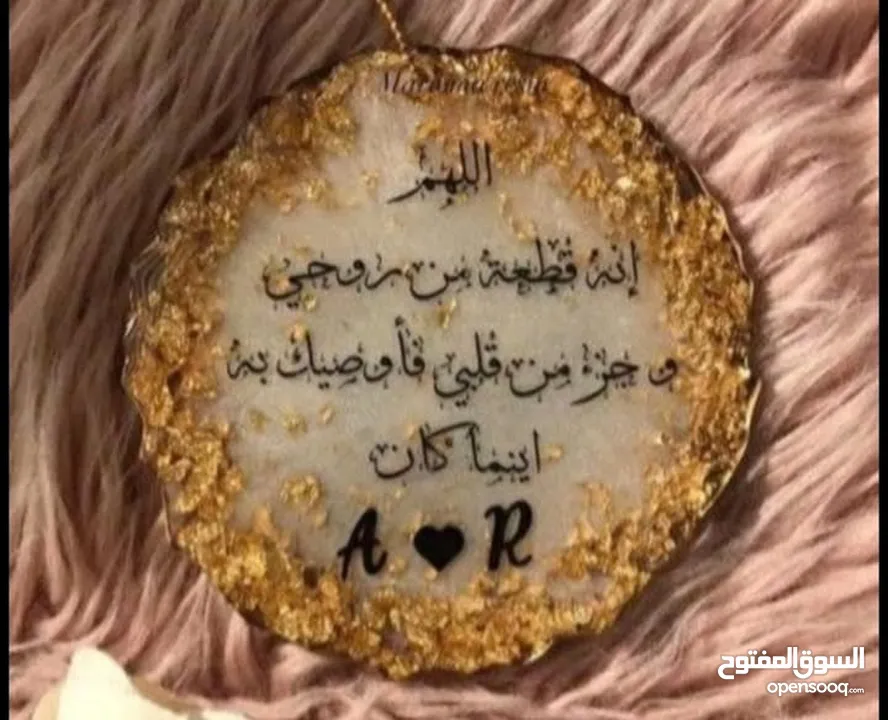 اللهم
إنه قطعة من روحي
و جزء من قلبي فأوصيك به
اينما كان
A ♥ R
السوق المفتوح
opensooq.com